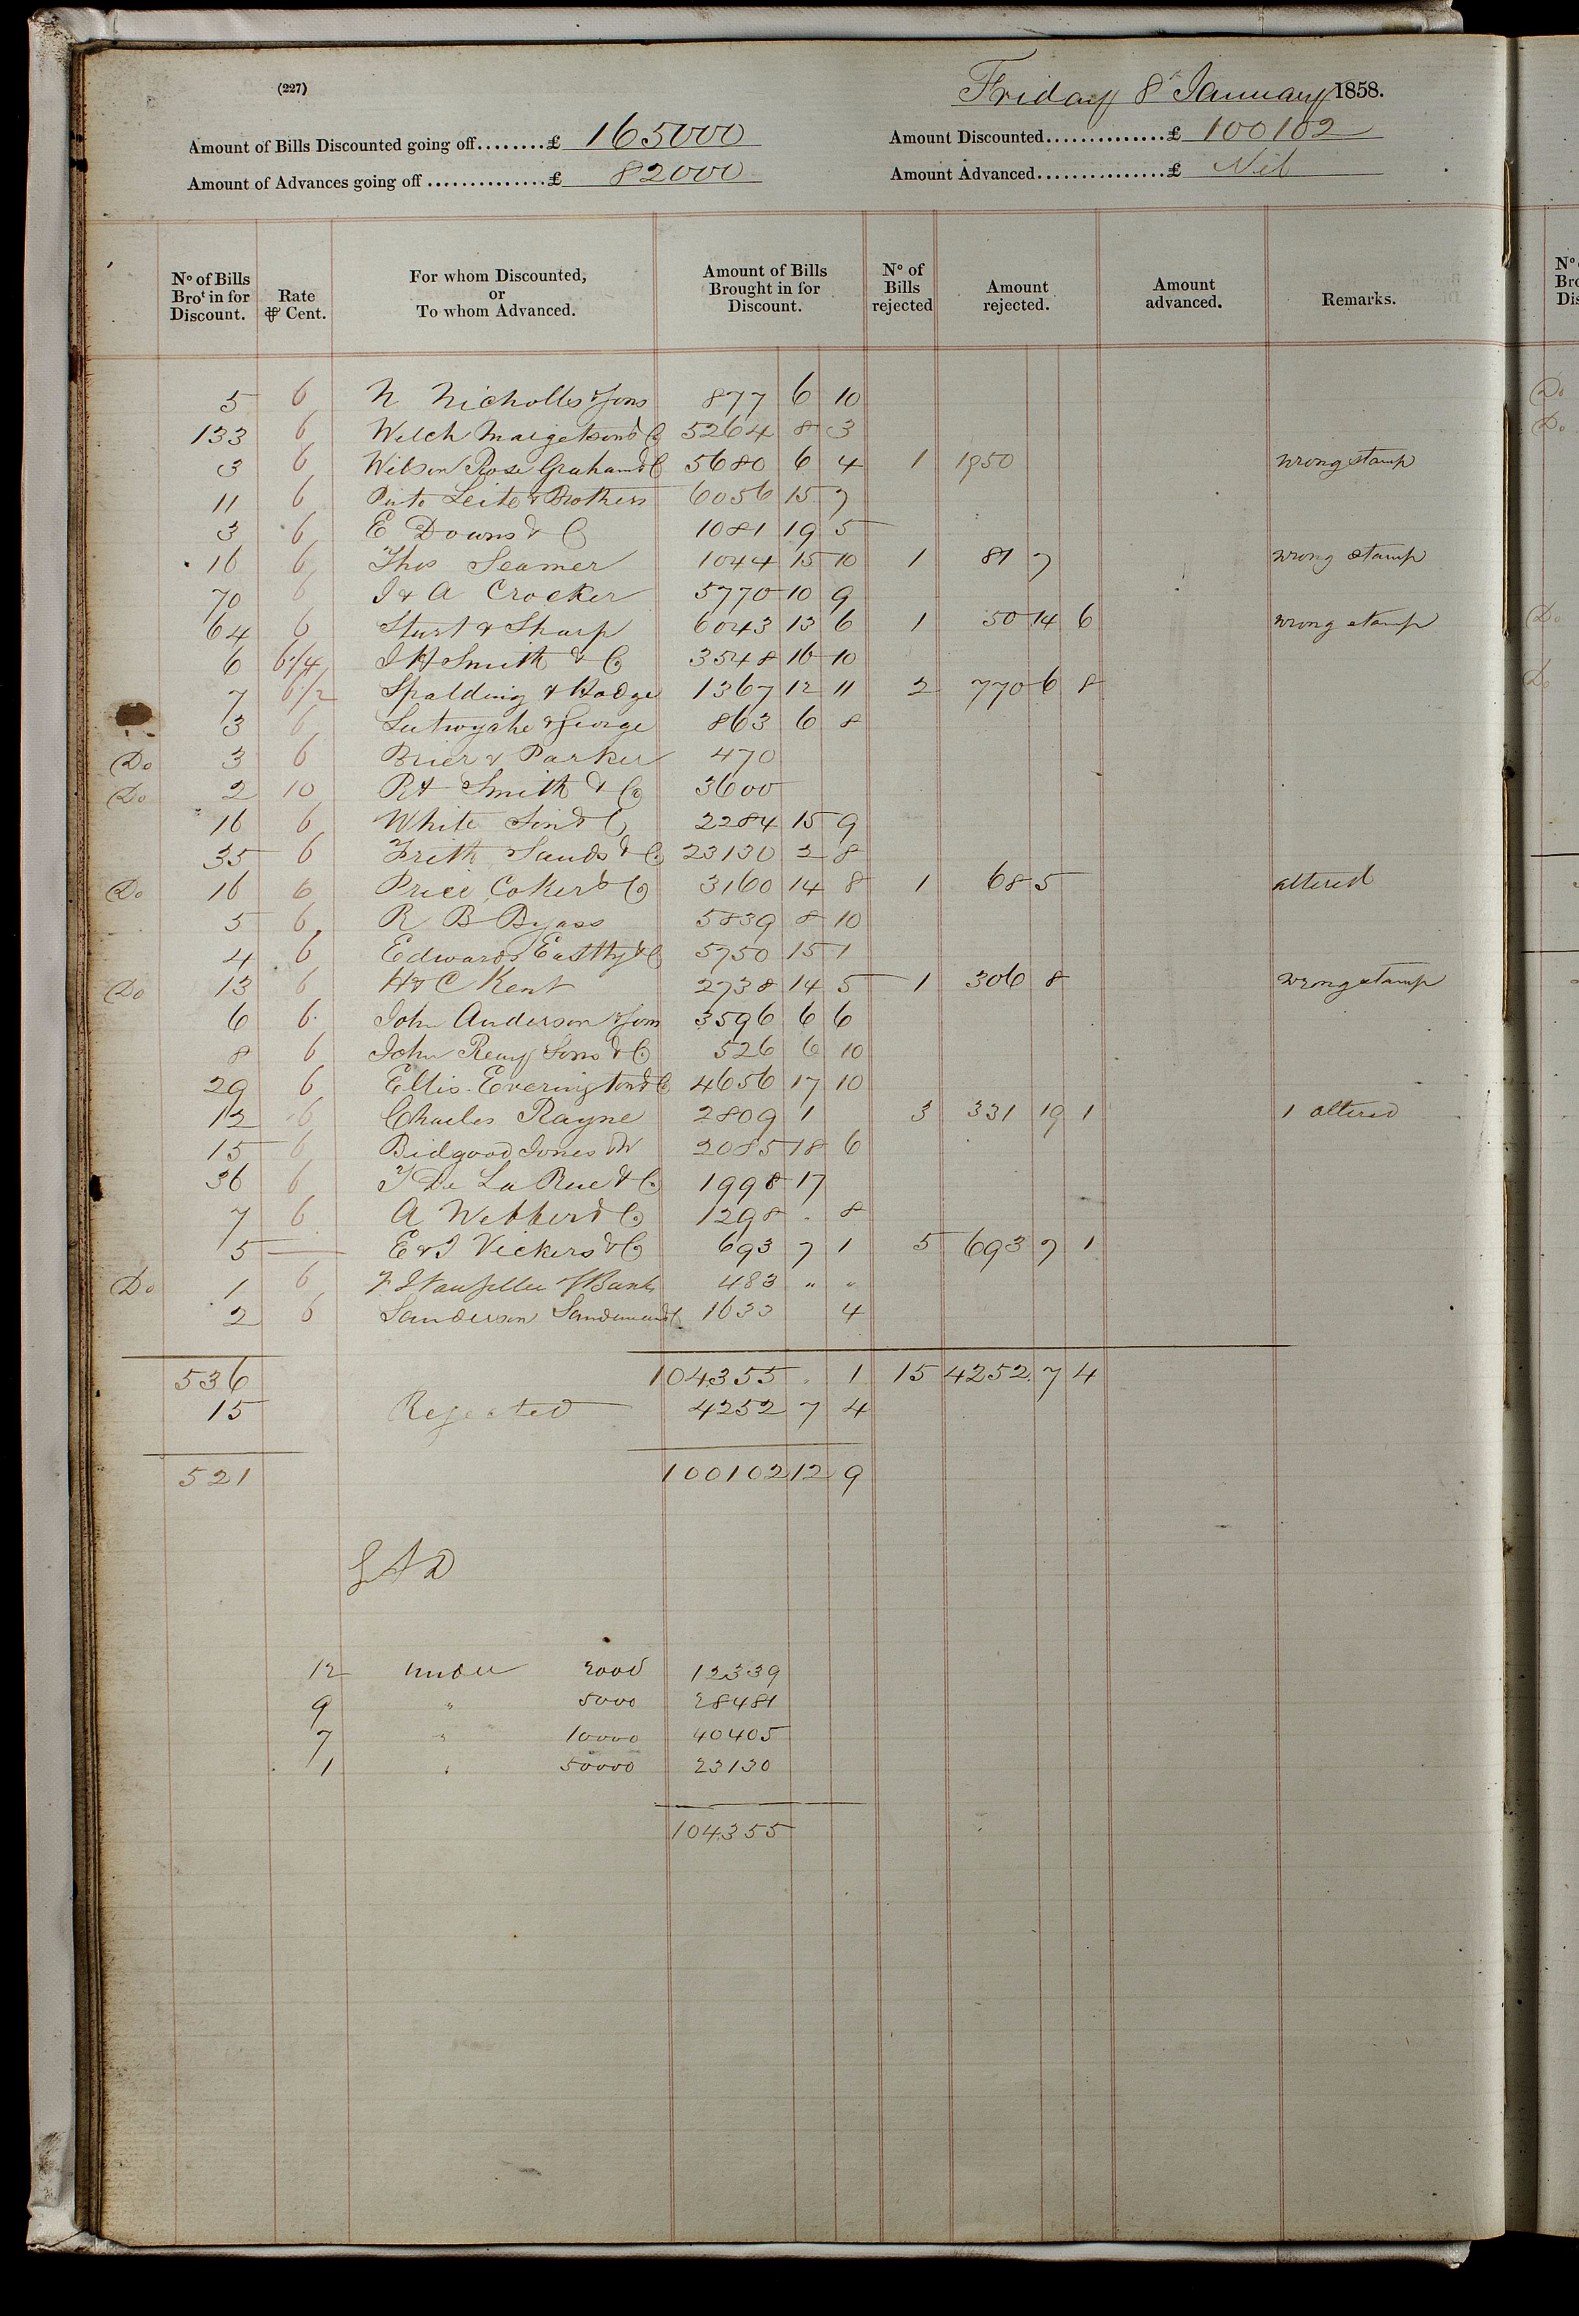 (227)
Friday 8th January 1858.
Amount of Bills Discounted going off........£ 165000
Amount Discounted..............£ 100102
Amount of Advances going off..............£ 82000
Amount Advanced...............£ Nil
No of Bills Brot in for Discount. Rate ⅌ Cent. For whom Discounted, or To whom Advanced. Amount of Bills Brought in for Discount. No of Bills rejected Amount rejected. Amount advanced. Remarks.
5 6 N Nicholls & Sons 877 6 10
133 6 Welch Margetson & Co 5264 8 3
3 6 Wilson Rose Graham & Co 5680 6 4 1 1950 wrong stamp
11 6 Pinto Leite & Brothers 6056 15 7
3 6 E Downs & Co 1081 19 5
16 6 Thos Seamer 1044 15 10 1 81 7 wrong stamp
70 6 J & A Crocker 5770 10 9
64 6 Sturt & Sharp 6043 13 6 1 50 14 6 wrong stamp
6 6 1/4 J H Smith & Co 3548 16 10
7 6 1/2 Spalding & Hodge 1367 12 11 2 770 6 8
3 6 Lutwyche & George 863 6 8
Do 3 6 Brier & Parker 470
Do 2 10 Smith & Co 3600
16 6 White Son & Co 2284 15 9
35 6 Frith Sands & Co 23130 2 8
Do 16 6 Price Coker & Co 3160 14 8 1 68 5 altered
5 6 R B Byass 5839 8 10
4 6 Edwards Eastty & Co 5750 15 1
Do 13 6 H & C Kent 2738 14 5 1 306 8 wrong stamp
6 6 John Anderson & Sons 3596 6 6
8 6 John Reay Sons & Co 526 6 10
29 6 Ellis Everington & Co 4656 17 10
12 6 Charles Rayne 2809 1 3 331 19 1 1 altered
15 6 Bidgood Jones & 2085 18 6
36 6 T De La Rue & Co 1998 17
7 6 A Webber & Co 1298 . 8
5 — E & J Vickers & Co 693 7 1 5 693 7 1
Do 1 6 Bank 483 " "
2 6 Sanderson Sandeman & Co 1633 4
536 104355 . 1 15 4252 7 4
15 Rejected 4252 7 4
521 100102 12 9
12 under 2000 12339
9 " 5000 28481
7 " 10000 40405
1 " 50000 23130
104355